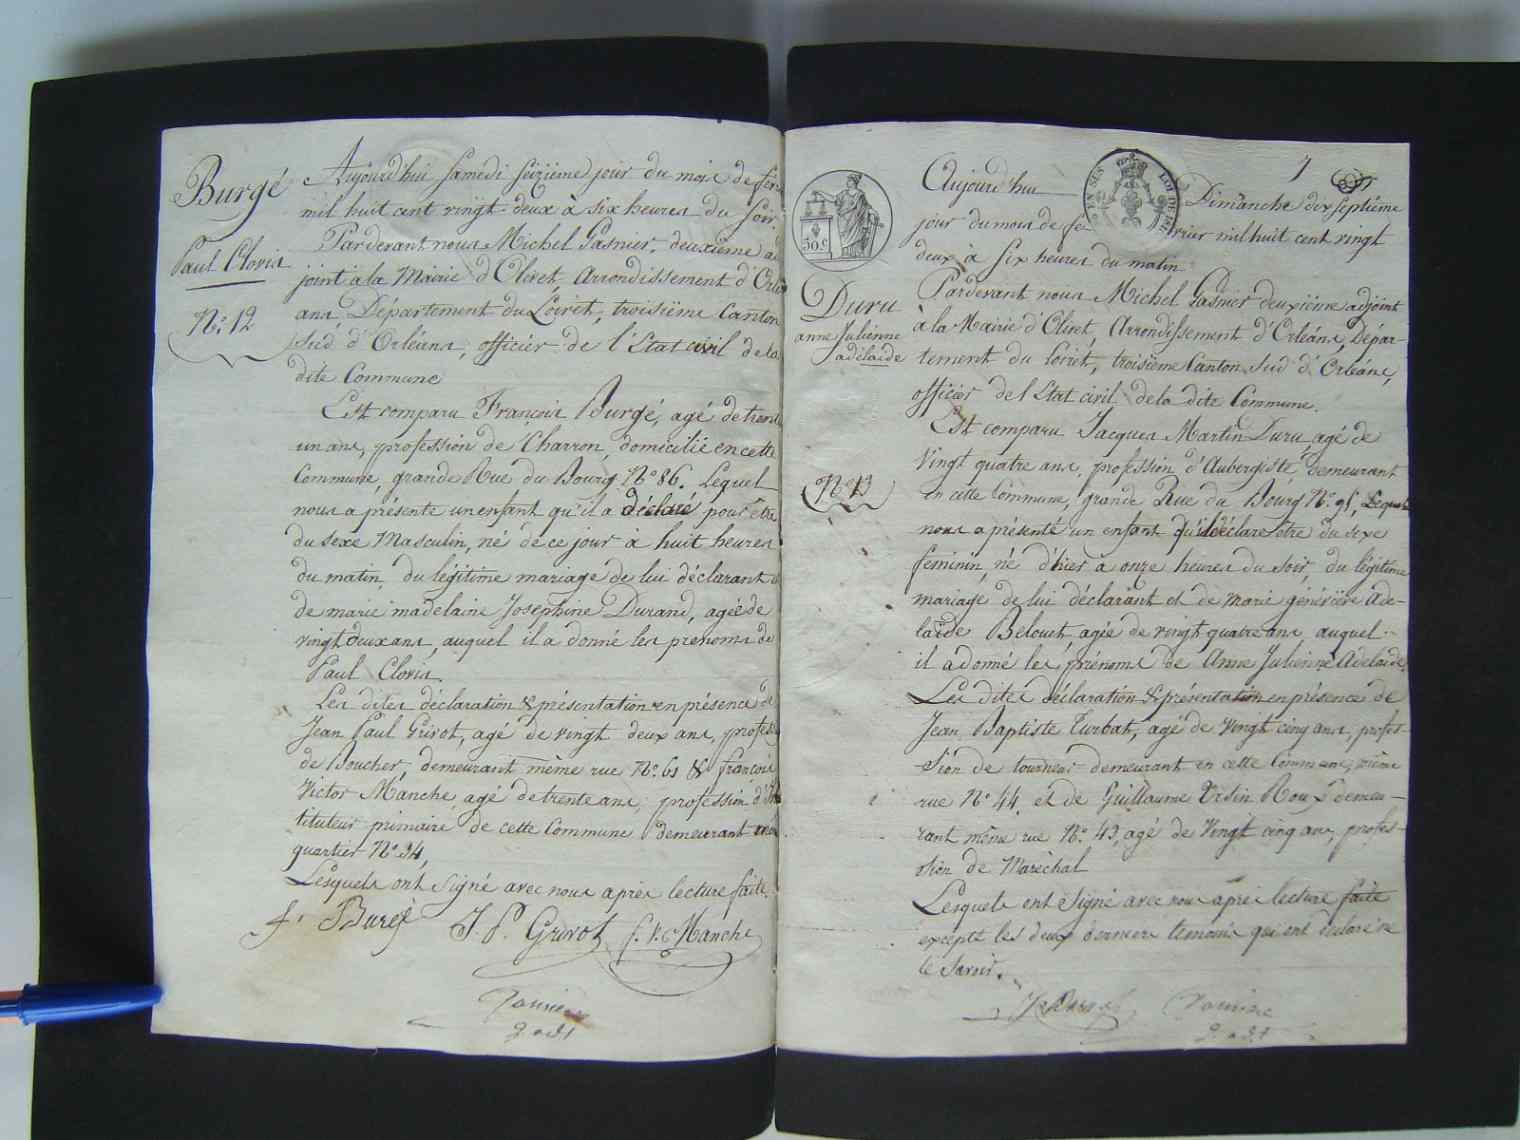 Burgé
Paul Clovis
N.° 12
Aujourd'hui Samedi seizième jour du mois de fev
mil huit cent vingt-deux à six heures du soir.
Pardevant nous Michel Pasnier, deuxième ad
joint à la Mairie d'Olivet, arrondissement d'Orlé
ans, Département du Loiret, troisième Canton
Sud d'Orléans, officier de l'Etat civil de la
dite Commune
Est comparu François Burgé, agé de trente
un ans, profession de Charron, domicilié en cette
Commune, grande Rue du Bourg N.° 86. Lequel
nous a présenté un enfant qu'il a déclaré pour être
du sexe Masculin, né de ce jour à huit heures
du matin, du légitime mariage de lui déclarant &
de marie madelaine Josephine Durand, agée de
vingt deux ans, auquel il a donné les prénoms de
Paul Clovis.
Les dites déclaration & présentation en présence de
Jean Paul Grivot, agé de vingt deux ans, profess
de Boucher, demeurant même rue N.° 61 & françois
Victor Manche, agé de trente ans, profession d'Ins
tituteur primaire de cette Commune demeurant
quartier N.° 34,
Lesquels ont signé avec nous après lecture faite.
f. Burgé J. P. Grivot f. V. Manche
Pasnier
2 adj
7
50 c
Duru
anne Julienne
adélaïde
N.° 13
Aujourd'hui Dimanche dix septième
jour du mois de fevrier mil huit cent vingt
deux à six heures du matin
Pardevant nous Michel Pasnier deuxième adjoint
à la Mairie d'Olivet, Arrondissement d'Orléans, Dépar-
tement du Loiret, troisième Canton Sud d'Orléans,
officier de l'Etat civil de la dite Commune.
Est comparu Jacques Martin Duru, agé de
vingt quatre ans, profession d'Aubergiste, demeurant
en cette Commune, grande Rue du Bourg N.° 91, Lequel
nous a présenté un enfant qu'il déclare être du sexe
feminin, né d'hier à onze heures du soir, du légitime
mariage de lui déclarant et de Marie généviève Ade-
laïde Belouet agée de vingt quatre ans, auquel
il a donné les prénoms de Anne Julienne Adelaide.
Les dites déclaration & présentation en présence de
Jean Baptiste Turbat, agé de vingt cinq ans, profes-
sion de tourneur demeurant en cette Commune, même
rue N.° 44 et de Guillaume Roux demeu-
rant même rue N.° 43, agé de vingt cinq ans, profes-
sion de Maréchal
Lesquels ont signé avec nous après lecture faite
excepté les deux derniers témoins qui ont déclaré ne
le savoir.
Pasnier
2 adj